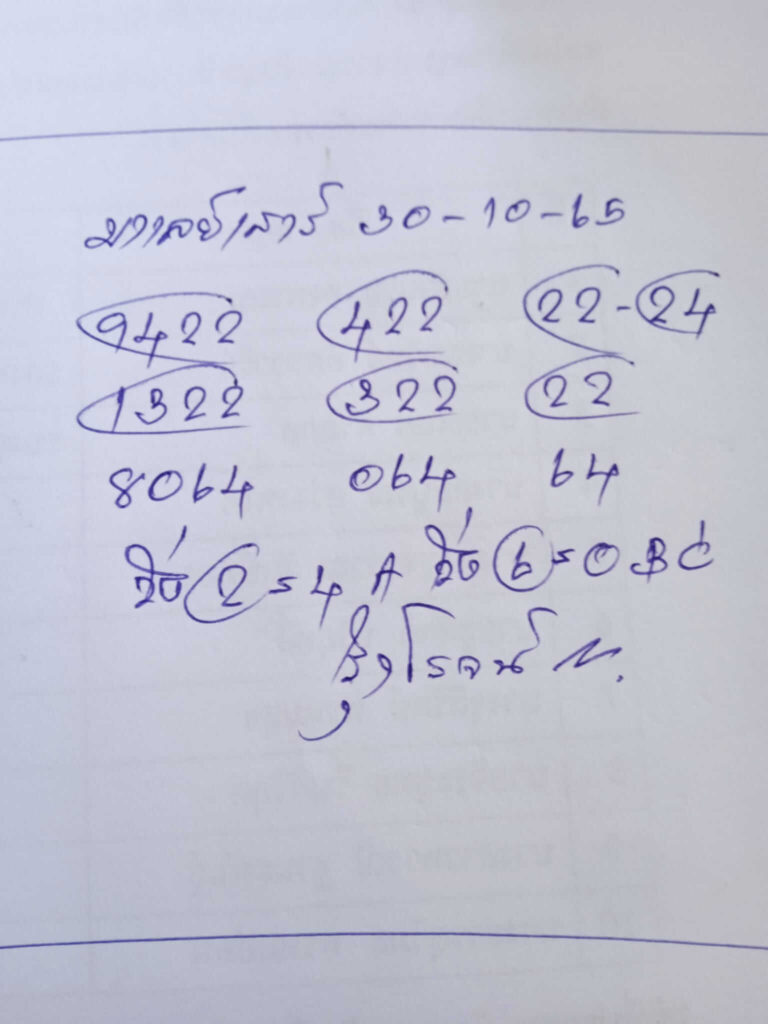 มาเลย์/เสาร์ 30-10-65
9422 422 22-24
1322 322 22
8064 064 64
วิ่ง 2=4 A วิ่ง 6=0 B C
รุ่งโรจน์ N.